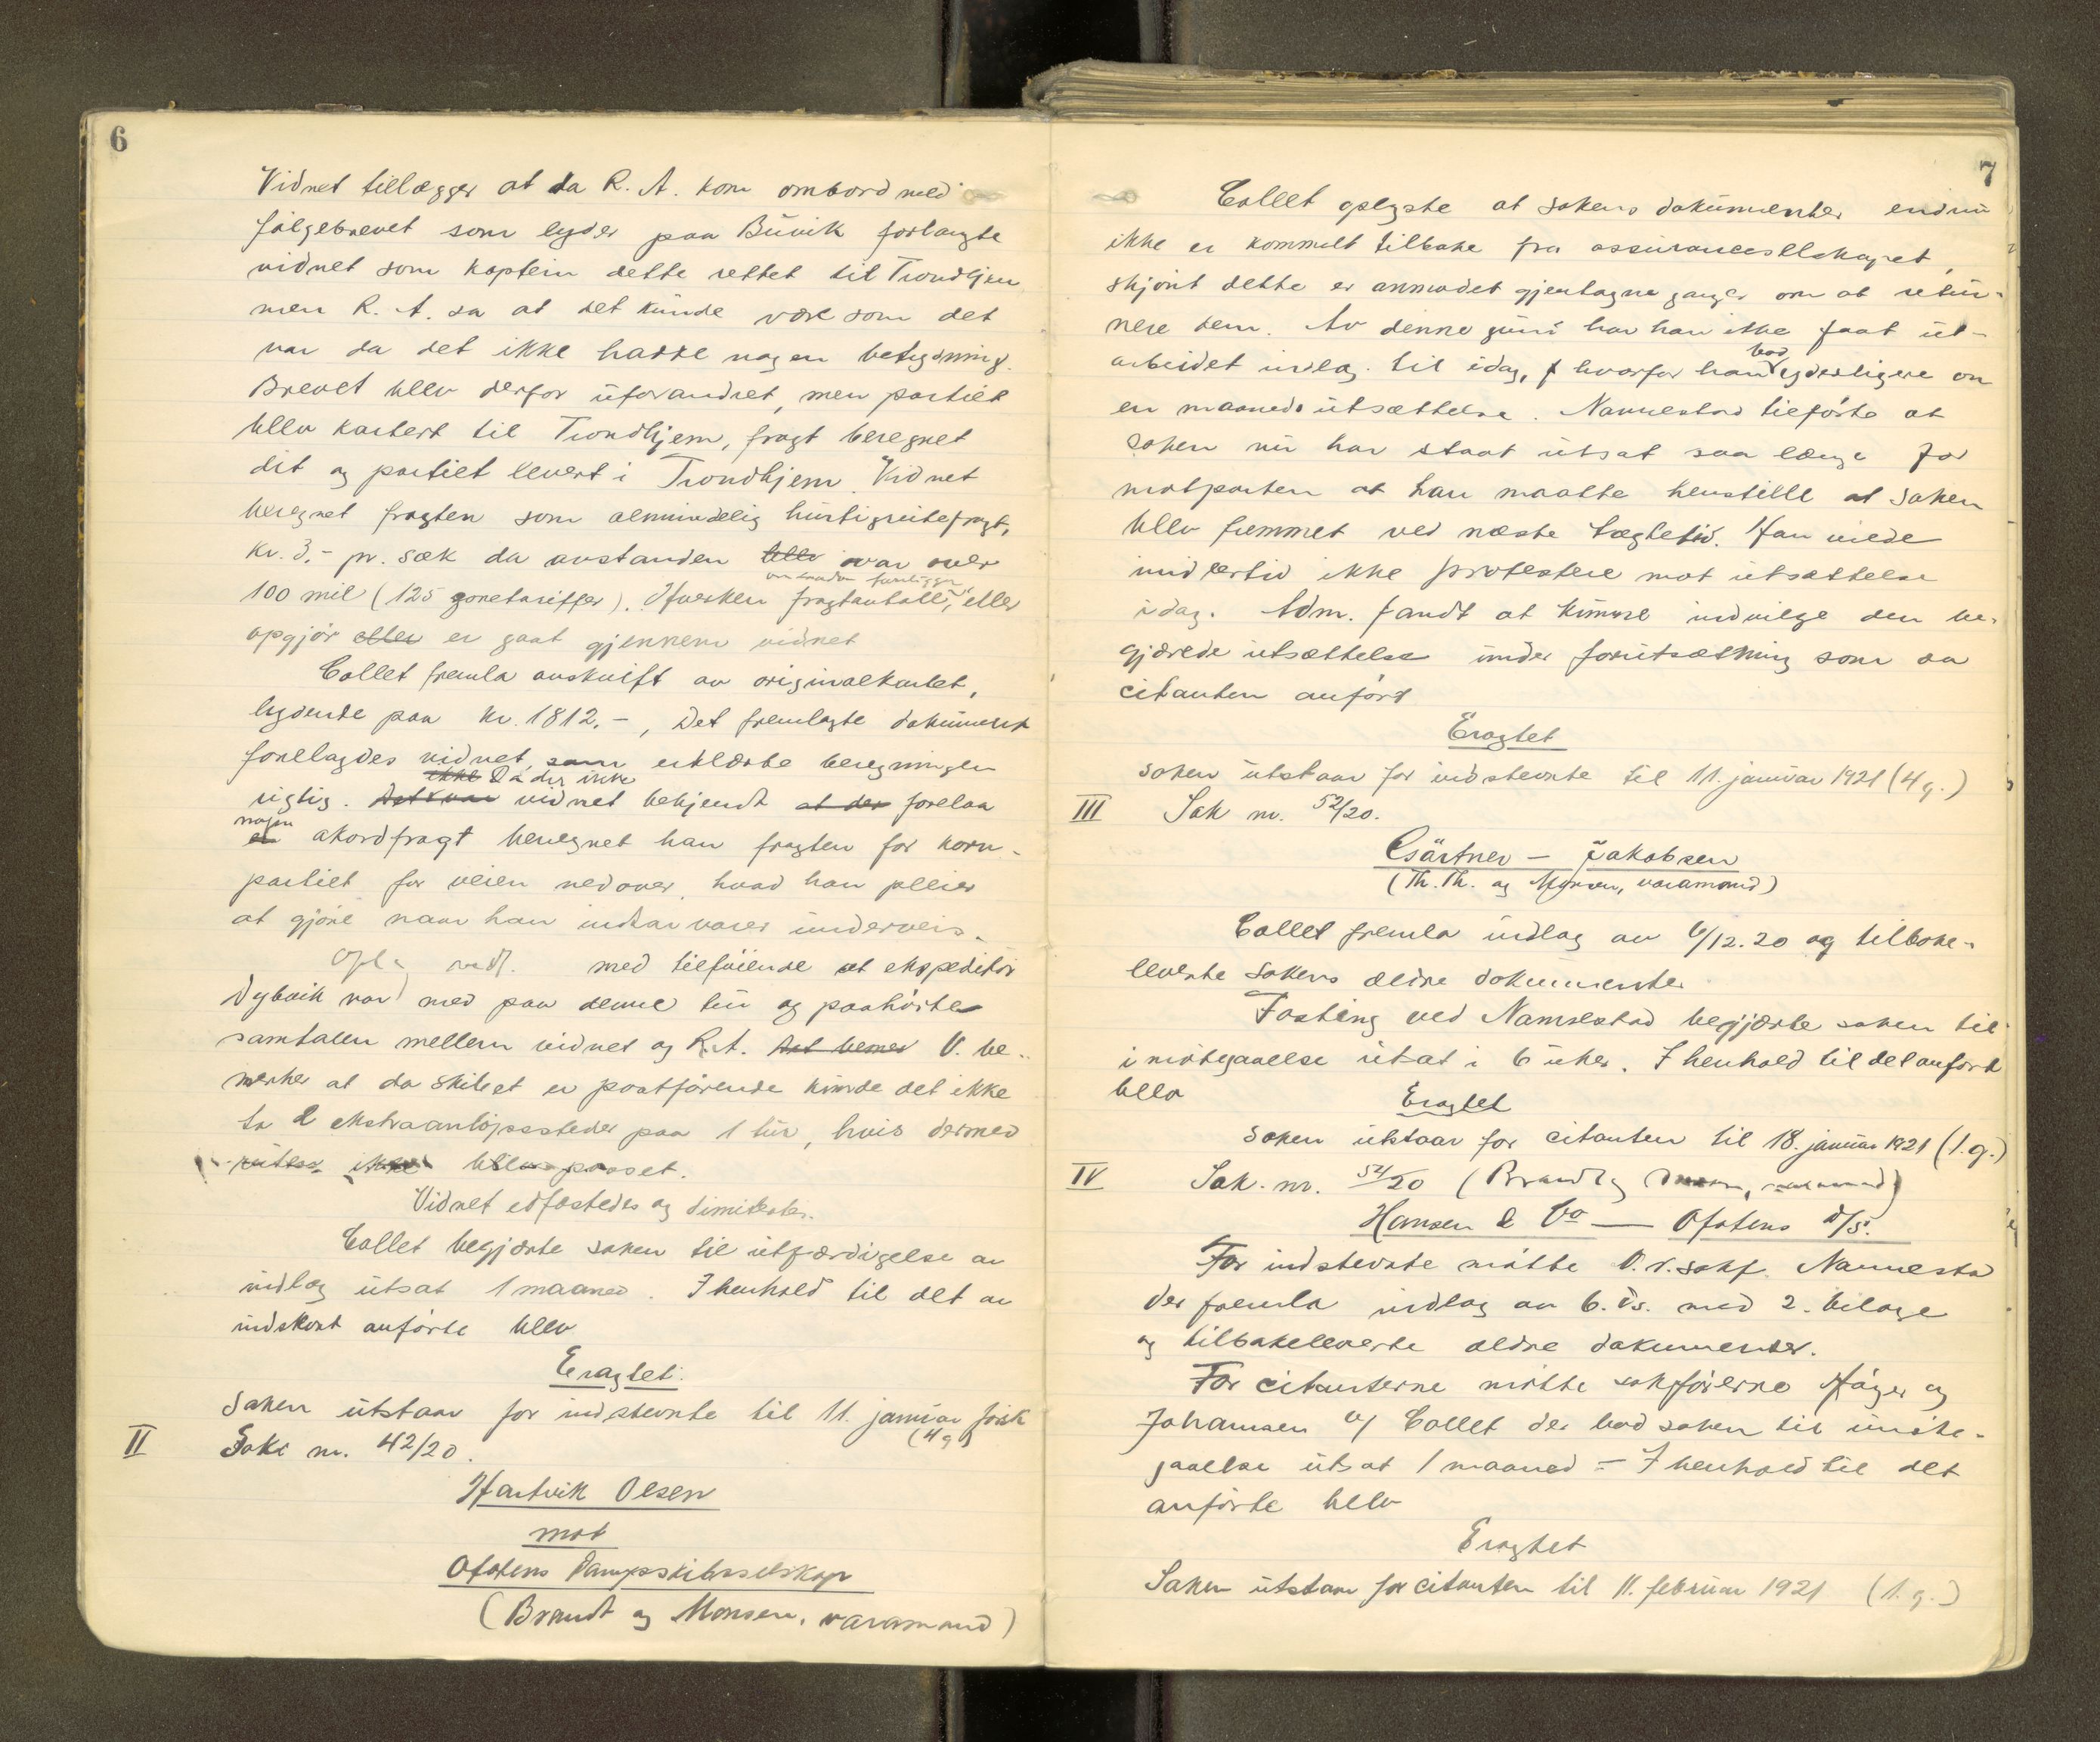 6
Vidnet tillægger at da R. A. kom ombord med
følgebrevet som lyder paa Buvik forlangte
vidnet som kaptein dette rettet til Trondhjem
men R. A. sa at det kunde være som det
var da det ikke hadde nogen betydning.
Brevet blev derfor uforandret, men partiet
blev kartert til Trondhjem, fragt beregnet
dit og partiet levert i Trondhjem. Vidnet
beregnet fragten som almindelig hurtigruitefragt,
Kr. 3.- pr. sæk da avstanden blev var over
100 mil (125 sonetariffer). Hverken fragtavtale, eller
opgjör eller er gaat gjennem vidnet
Collet fremla avskrift av originalkartet,
lydende paa Kr. 1812.-, Det fremlagte dokument
forelagdes vidnet, som erklærte beregningen
ikke Da der ikke
rigtig. Det var vidnet bekjendt at der forelaa
nogen
en akordfragt beregnet han fragten for korn-
partiet for veien nedover, hvad han pleier
at gjöre naar han indtar varer underveis.
Opl. og vedt. med tilföiende at ekspeditör
Dybvik var med paa denne tur og paahörte
samtalen mellem vidnet og R. A. Det bemer V. be-
merker at da skibet er postförende kunde det ikke
ta 2 ekstraanlöpssteder paa 1 tur, hvis dermed
ruten ikke blev passet.
Vidnet edfæstedes og dimitertes.
Collet begjærte saken til utfærdigelse av
indlæg utsat 1 maaned. I henhold til det av
indstevnt anförte blev
Eragtet:
Saken utstaar for indstevnte til 11. januar först
(4 g)
II Sak nr. 42/20.
Hartvik Olsen
mot
Ofotens Dampskibsselskap
(Brandt og Monsen, varamand)
7
Collet oplyste at sakens dokumenter endnu
ikke er kommet tilbake fra assuranceselskapet,
skjönt dette er anmodet gjentagne ganger om at retur-
nere dem. Av denne grund har han ikke faat ut-
bad
arbeidet indlæg til idag, hvorfor han ydesligere om
en maaneds utsættelse. Nannestad tilförte at
saken nu har staat utsat saa længe for
motparten at han maatte henstille at saken
blev fremmet ved næste tægtetid. Han vilde
imidlertid ikke protestere mot utsættelse
idag. Adm. fandt at kunne indvilge den be-
gjærede utsættelse under forutsætning som av
citanten anfört
Eragtet
saken utstaar for indstevnte til 11. januar 1921 (4 g.)
III Sak nr. 52/20.
Gärtner - Jakobsen
(Th. Th. og Monsen, varamand)
Collet fremla indlæg av 6/12.20 og tilbake-
leverte sakens ældre dokumenter
Fasting ved Nannestad begjærte saken til
imötegaaelse utsat i 6 uker. I henhold til det anfört
blev
Eragtet
Saken utstaar for citanten til 18. januar 1921 (1. g.)
IV Sak. nr. 54/20 (Brandt og Monsen, varamand)
Hansen & Co — Ofotens D/S.
For indstevnte mötte O.r.sakf. Nannestad
der fremla indlæg av 6. ds. med 2. bilage
og tilbakeleverte ældre dokumenter.
For citanterne mötte sakförerne Häyer og
Johansen v/ Collet der bad saken til imöte-
gaaelse utsat 1 maaned - I henhold til det
anförte blev
Eragtet
Saken utstaar for citanten til 11. februar 1921 (1. g.)